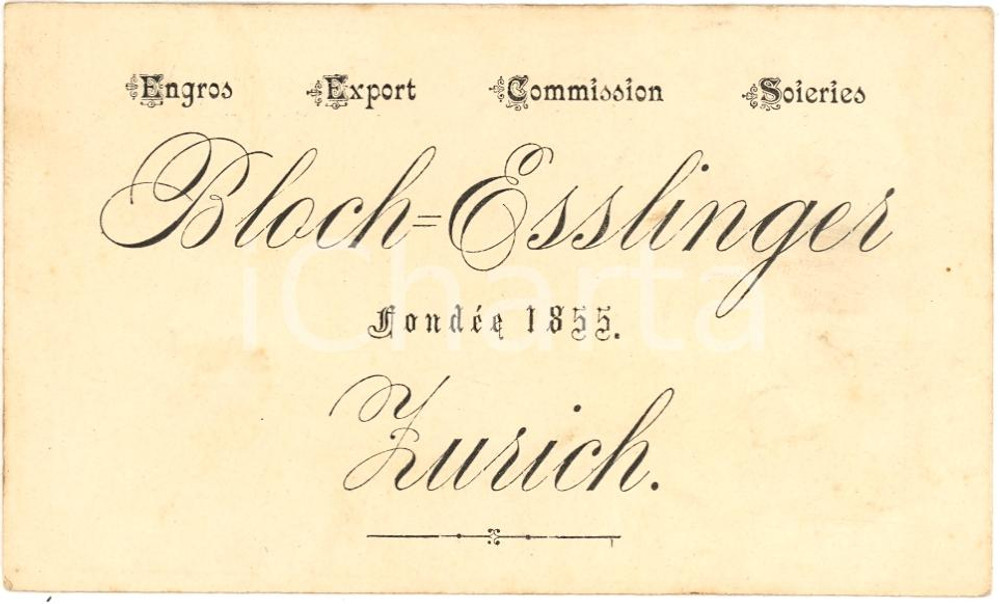 Engros Export Commission Soieries
Bloch=Esslinger
iCharta
Fondée 1855.
Zurich.